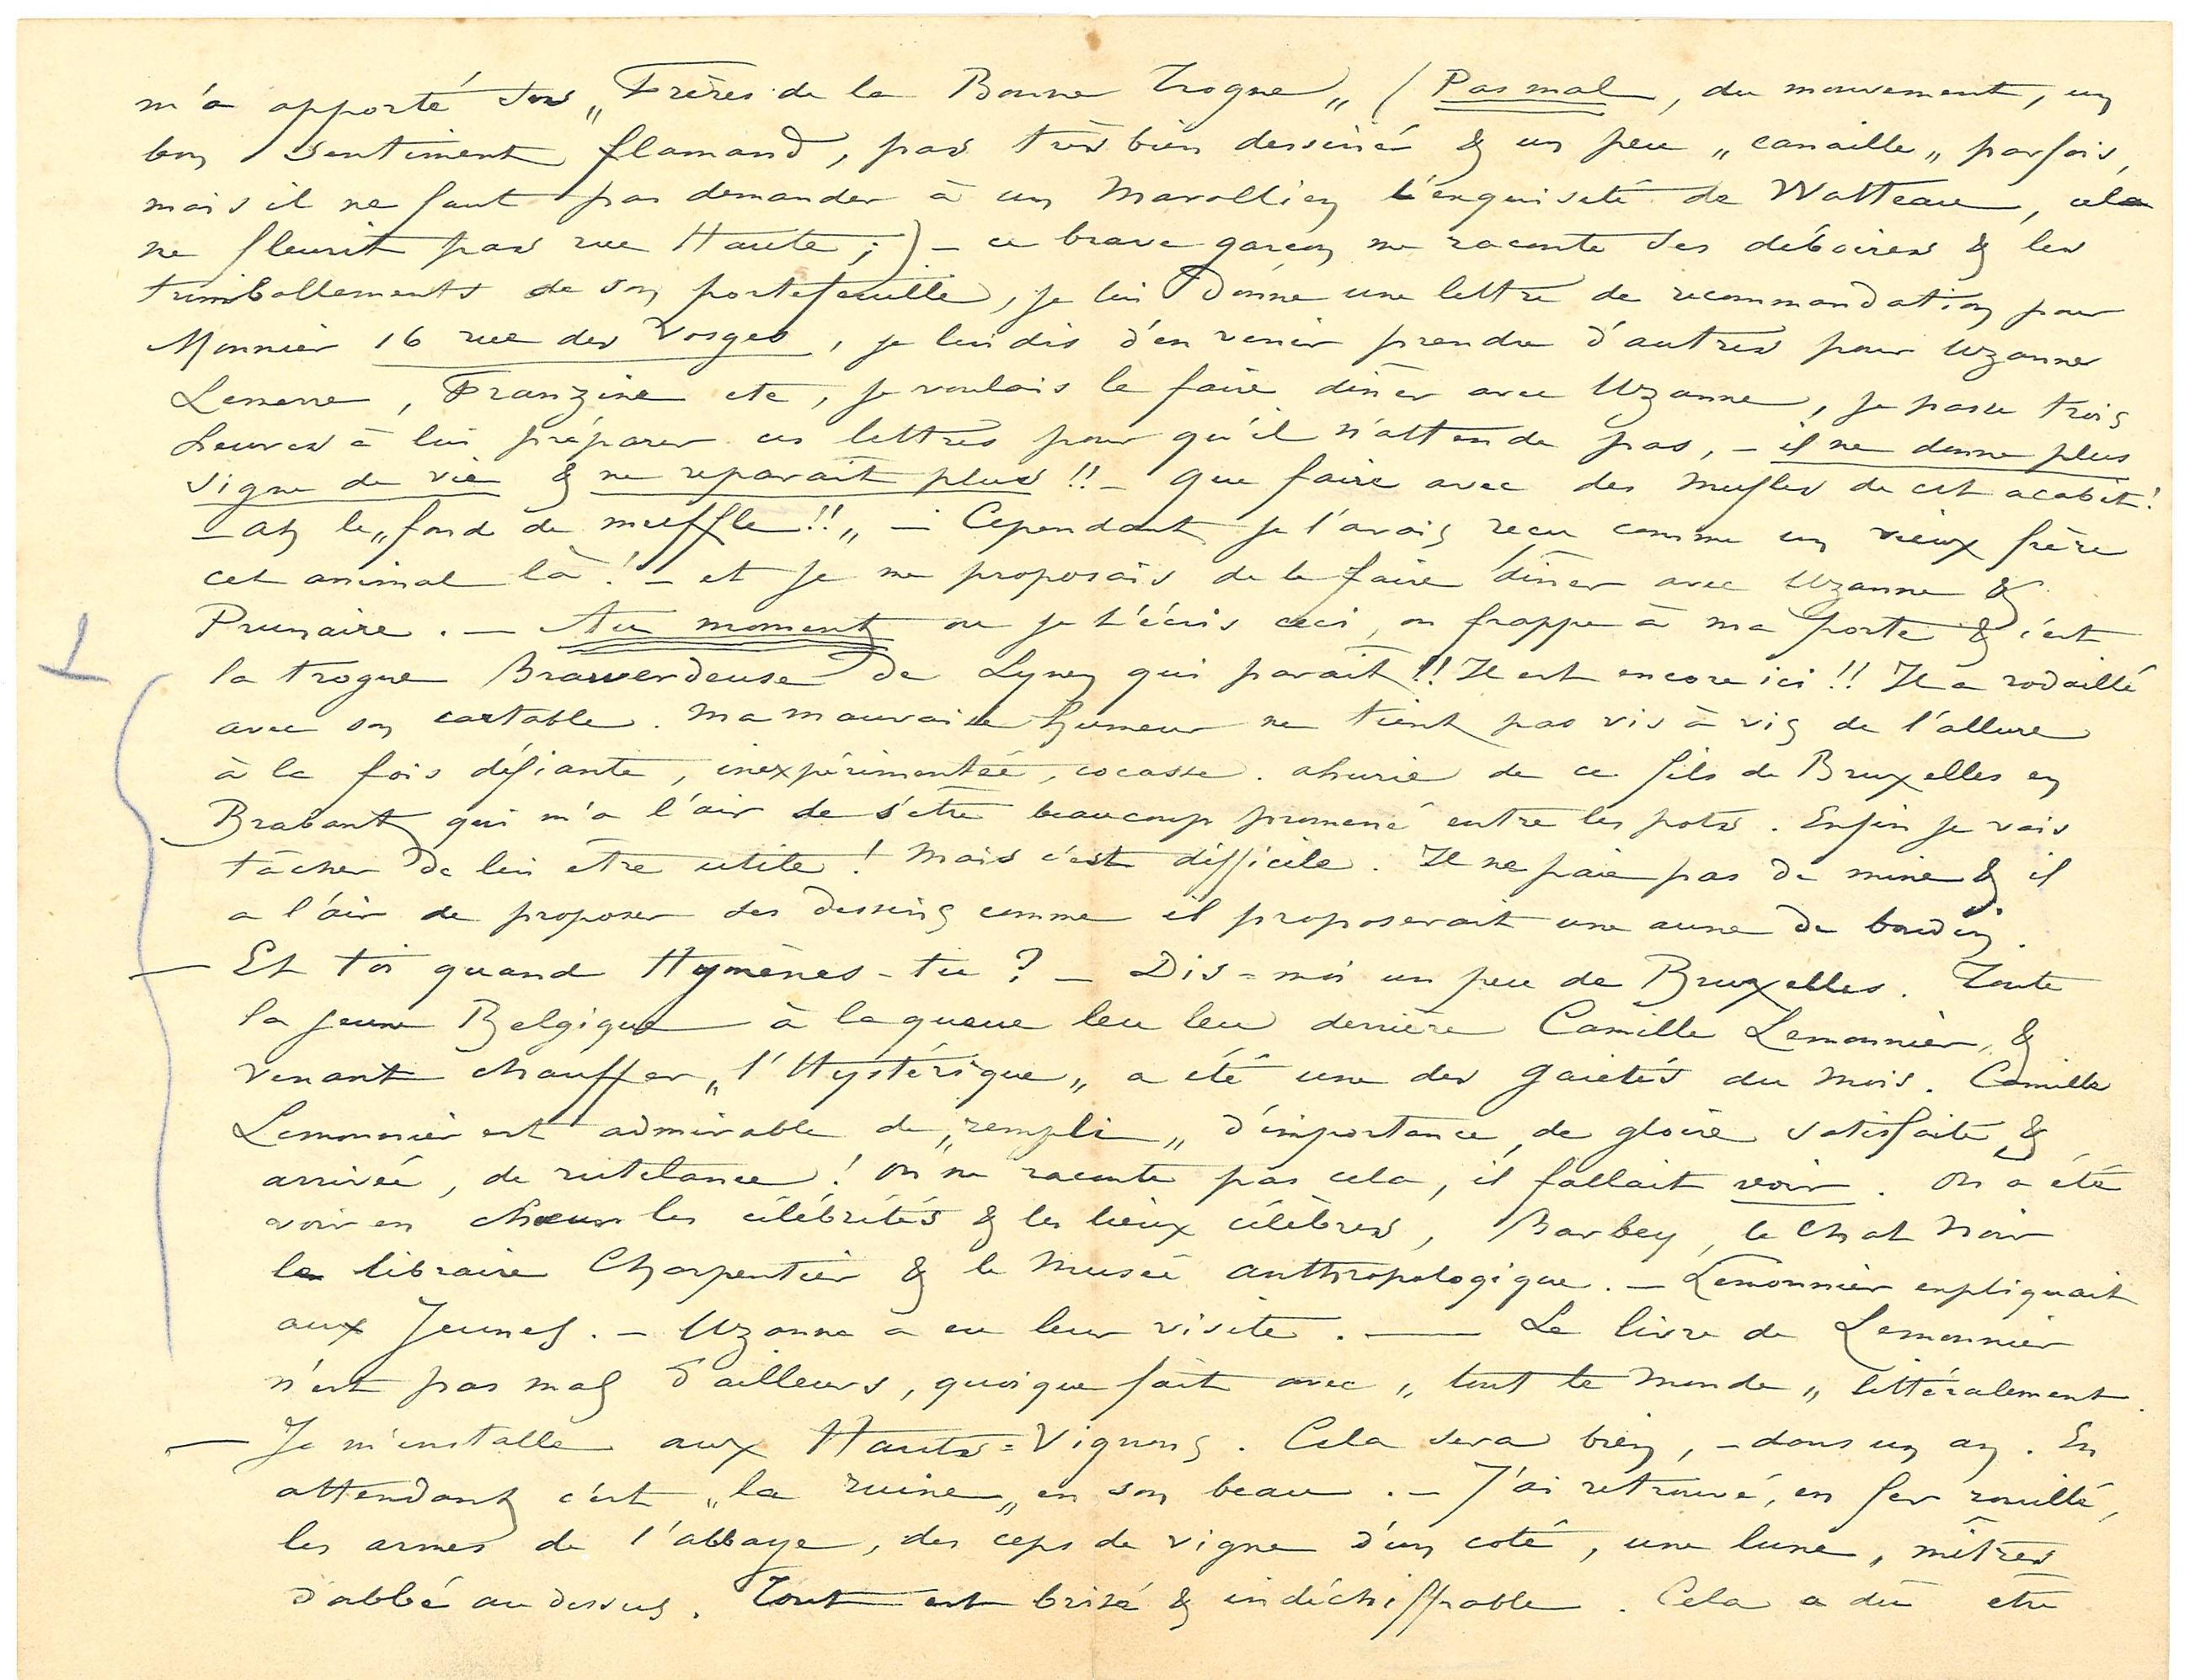 m'a apporté ses „Frères de la Bonne Trogne„ (Pas mal, du mouvement, un
bon sentiment flamand, pas très bien dessiné & un peu „canaille„ parfois,
mais il ne faut pas demander à un Marollien l'exquisité de Watteau, cela
ne fleurit pas rue Haute ;) – ce brave garçon me raconte ses déboires & les
trimballements de son portefeuille, je lui donne une lettre de recommandation pour
Monnier 16 rue des Vosges, je lui dis d'en venir prendre d'autres pour Uzanne
Lemerre, Franzine etc, je voulais le faire dîner avec Uzanne, je passe trois
heures à lui préparer ces lettres pour qu'il n'attende pas, – il ne donne plus
signe de vie & ne reparait plus !! – Que faire avec des mufles de cet acabit !
– ah le „fond de muffle !!„ – Cependant je l'avais reçu comme un vieux frère
cet animal là ! – et je me proposais de le faire dîner avec Uzanne &
Prunaire. – Au moment où je t'écris ceci, on frappe à ma porte & c'est
la trogne Brauwerdeuse de Lynen qui parait !! Il est encore ici !! Il a rodaillé
avec son cartable. Ma mauvaise humeur ne tient pas vis à vis de l'allure
à la fois défiante, inexpérimentée, cocasse. ahurie de ce fils de Bruxelles en
Brabant qui m'a l'air de s'être beaucoup promené entre les pots. Enfin je vais
tâcher de lui être utile ! Mais c'est difficile. Il ne paie pas de mine & il
a l'air de proposer des dessins comme il proposerait une aune de boudin.
– Et toi quand Hymènes-tu ? – Dis=moi un peu de Bruxelles. Toute
la jeune Belgique à la queue leu leu derrière Camille Lemonnier, &
venant chauffer „l'Hystérique„ a été une des gaietés du mois. Camille
Lemonnier est admirable de „rempli„ d'importance, de gloire satisfaite &
arrivée, de rutilance ! On ne raconte pas cela, il fallait voir. On a été
voir en chœur les célébrités & les lieux célèbres, Barbey, le Chat Noir
le libraire Charpentier & le Musée anthropologique. – Lemonnier expliquait
aux Jeunes. – Uzanne a eu leur visite. — Le livre de Lemonnier
n'est pas mal d'ailleurs, quoique fait avec „tout le monde„ littéralement.
– Je m'installe aux Hauts=Vignons. Cela sera bien, – dans un an. En
attendant c'est „la ruine„ en son beau. – J'ai retrouvé, en fer rouillé,
les armes de l'abbaye, des ceps de vigne d'un coté, une lune, mîtres
d'abbé au dessus. Tout est brisé & indéchiffrable. Cela a dû être